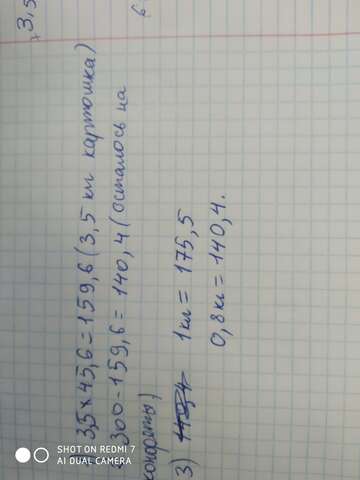 3,5
1) 3,5 × 45,6 = 159,6 (3,5 кг картошка)
2) 300 - 159,6 = 140,4 (осталось на
конфеты)
3) 140,4 1 кг = 175,5
0,8 кг = 140,4.
SHOT ON REDMI 7
AI DUAL CAMERA